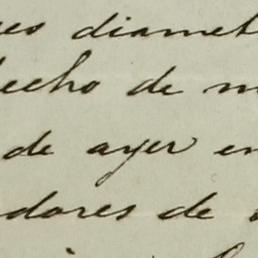 es diamet
echo de m
de ayer en
dores de